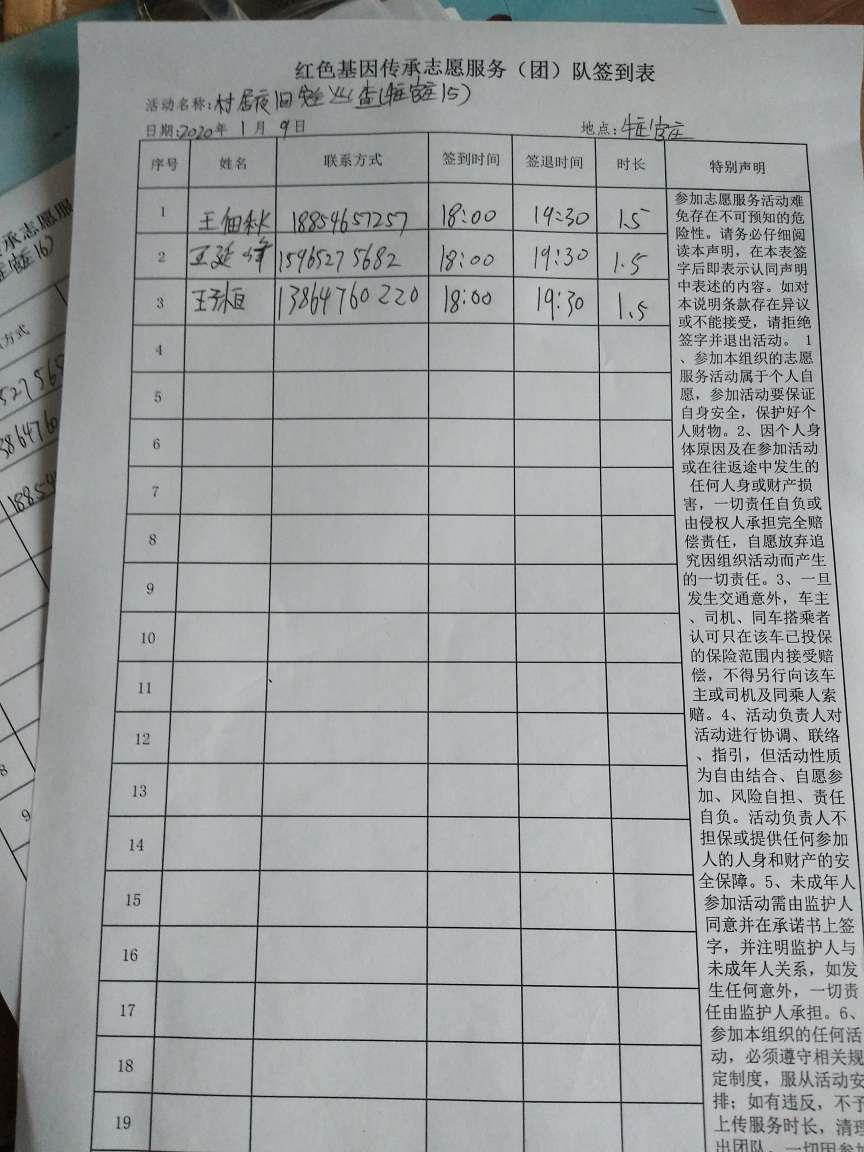 红色基因传承志愿服务（团）队签到表
活动名称:村居夜间安全巡查(牲官庄15)
日期:2020年 1月 9日 地点:牲官庄
序号 姓名 联系方式 签到时间 签退时间 时长 特别声明
1 王佃秋 18854657257 18:00 19:30 1.5
2 王延峰 15965275682 18:00 19:30 1.5
3 13864760220 18:00 19:30 1.5
4
5
6
7
8
9
10
11
12
13
14
15
16
17
18
19
参加志愿服务活动难
免存在不可预知的危
险性。请务必仔细阅
读本声明，在本表签
字后即表示认同声明
中表述的内容。如对
本说明条款存在异议
或不能接受，请拒绝
签字并退出活动。 1
、参加本组织的志愿
服务活动属于个人自
愿，参加活动要保证
自身安全，保护好个
人财物。2、因个人身
体原因及在参加活动
或在往返途中发生的
任何人身或财产损
害，一切责任自负或
由侵权人承担完全赔
偿责任，自愿放弃追
究因组织活动而产生
的一切责任。3、一旦
发生交通意外，车主
、司机、同车搭乘者
认可只在该车已投保
的保险范围内接受赔
偿，不得另行向该车
主或司机及同乘人索
赔。4、活动负责人对
活动进行协调、联络
、指引，但活动性质
为自由结合、自愿参
加、风险自担、责任
自负。活动负责人不
担保或提供任何参加
人的人身和财产的安
全保障。5、未成年人
参加活动需由监护人
同意并在承诺书上签
字，并注明监护人与
未成年人关系，如发
生任何意外，一切责
任由监护人承担。6、
参加本组织的任何活
动，必须遵守相关规
定制度，服从活动安
排；如有违反，不予
上传服务时长，清理
出团队。一切因参加
承志愿服
方式
52756
386476
1885
8
9